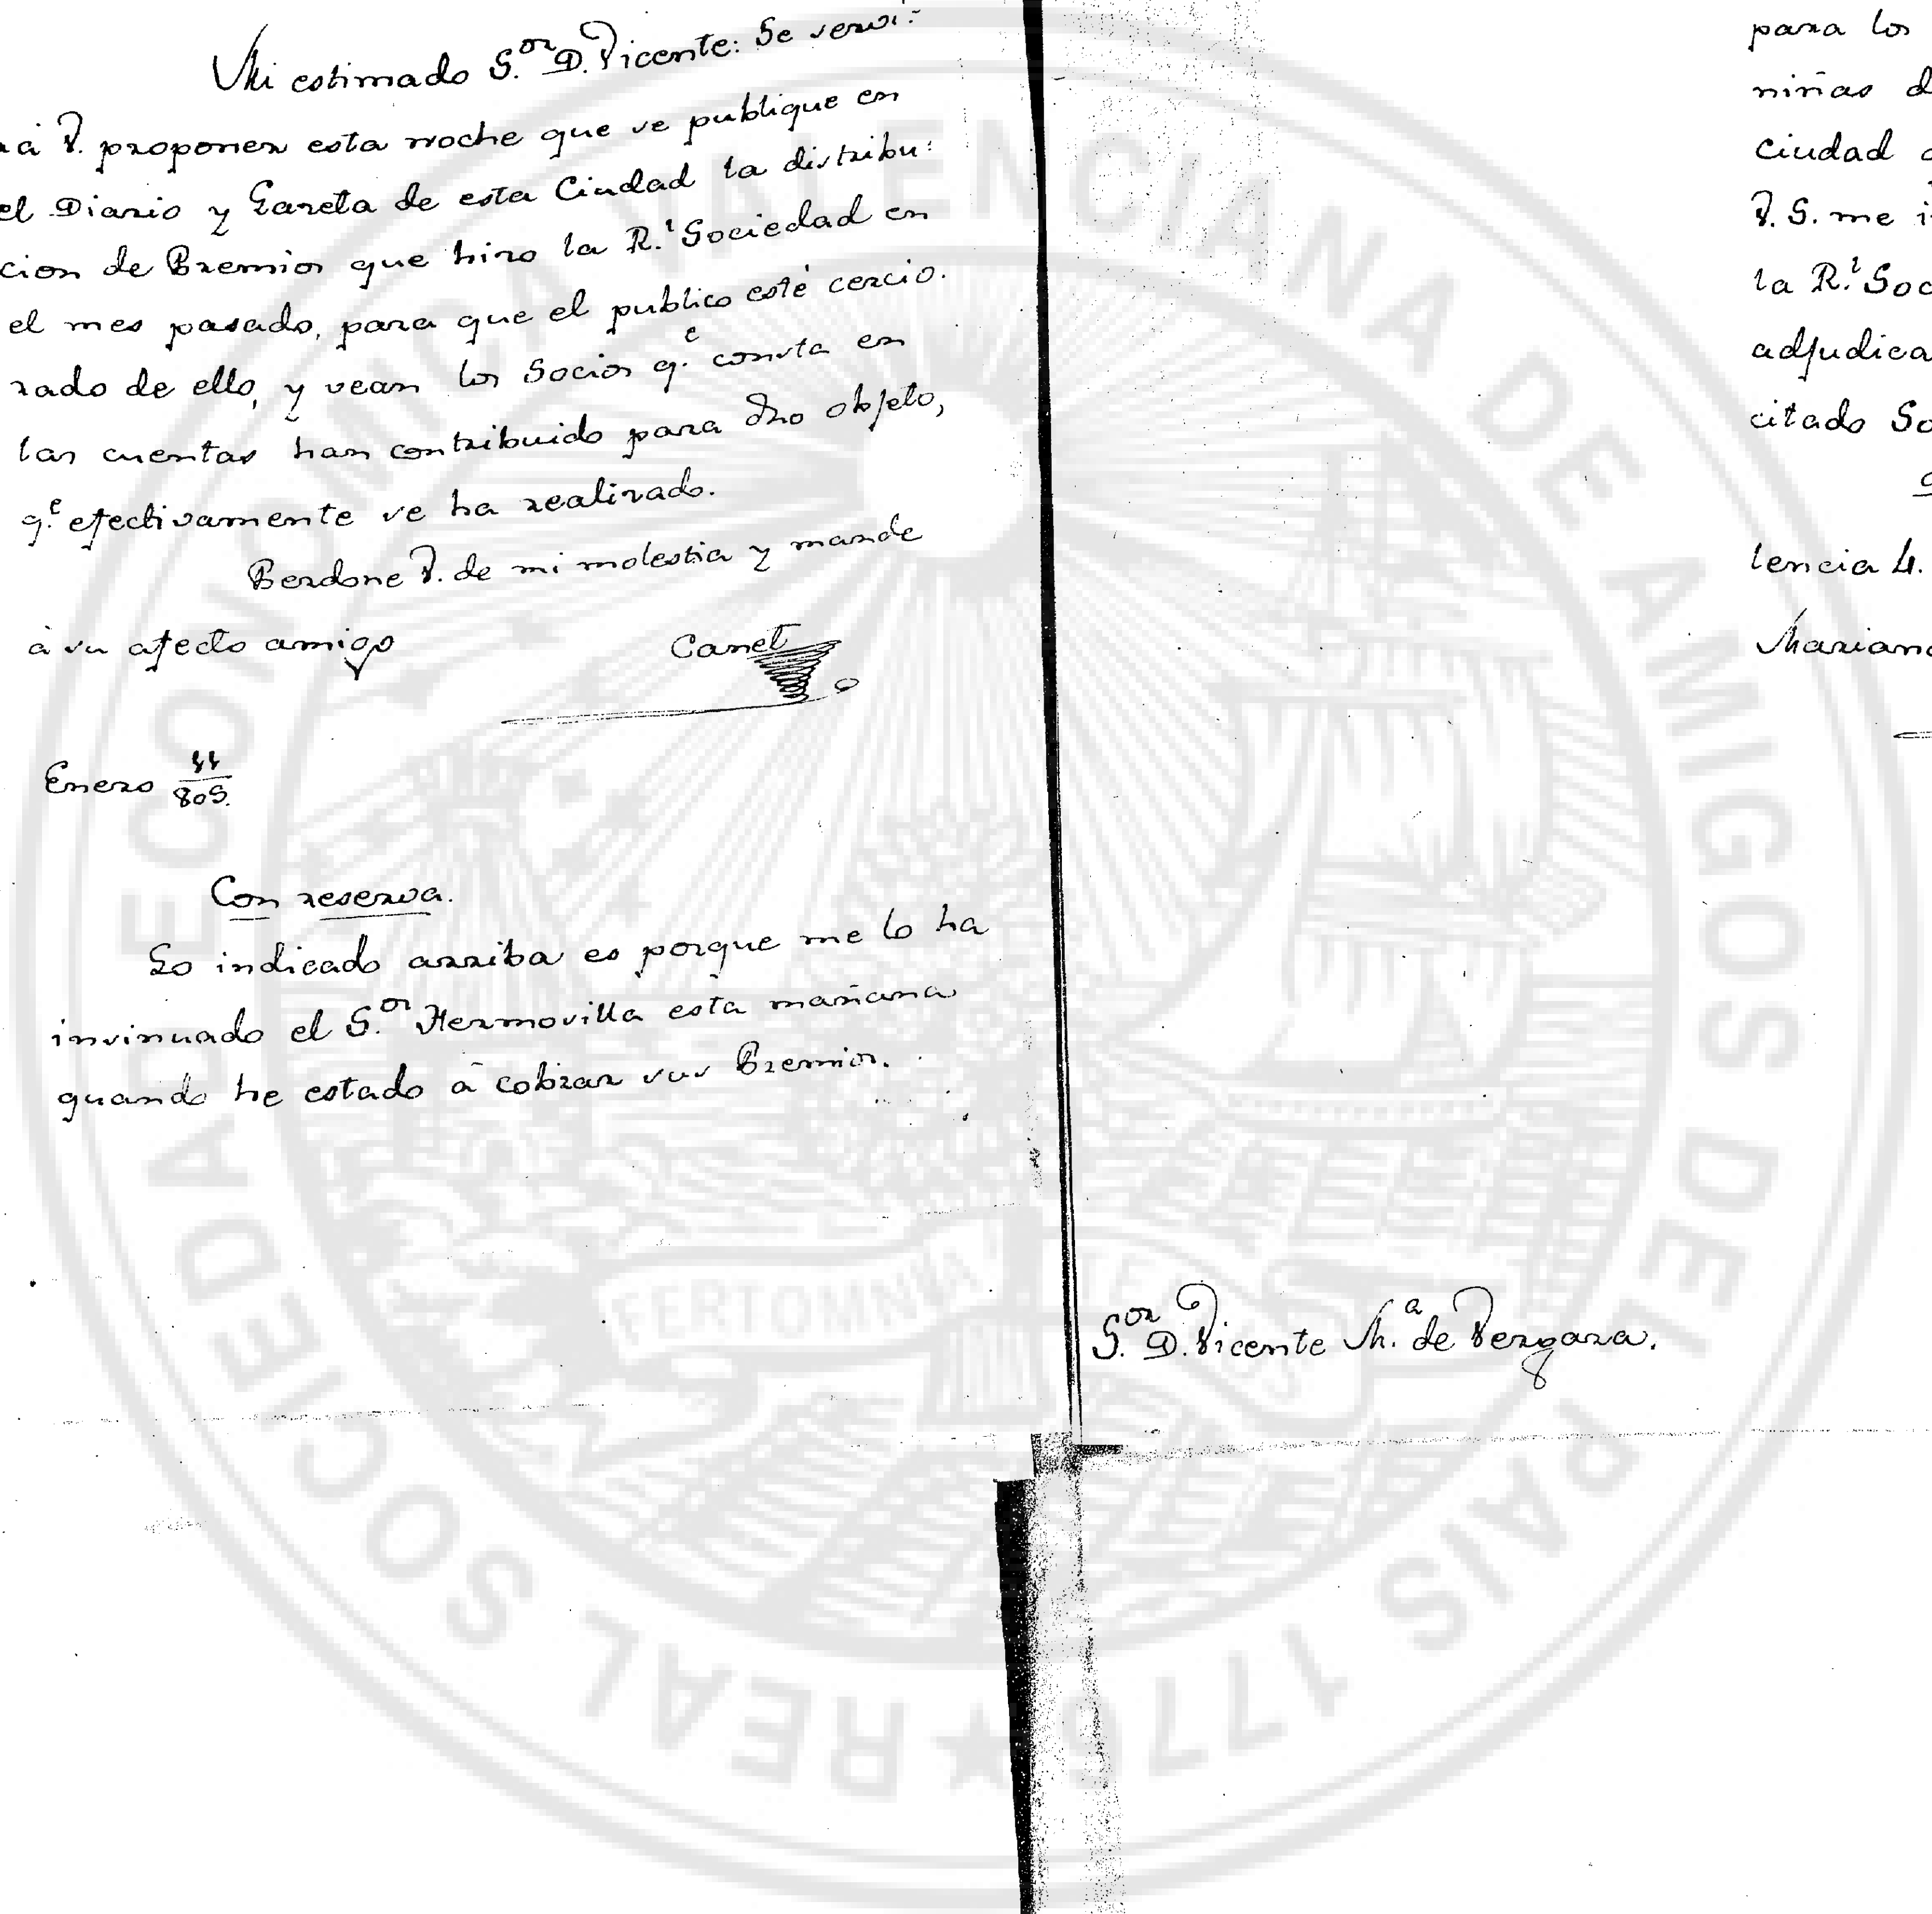 Mi estimado S.or D. Vicente: Se servi-
rá V. proponer esta noche que se publique en
el Diario y Gazeta de esta Ciudad la distribu-
cion de Premios que hizo la R.l Sociedad en
el mes pasado, para que el publico esté cercio-
rado de ello, y vean los Socios q.e consta en
las cuentas han contribuido para dho objeto,
q.e efectivamente se ha realizado.
Perdone V. de mi molestia y mande
à su afecto amigo Canet
Enero 11/805.
Con reserva.
Lo indicado arriba es porque me lo ha
insinuado el S.or Hermosilla esta mañana
quando he estado à cobrar sus Premios.
S.or D. Vicente M.a de Vergara.
para los
niñas d
ciudad
V. S. me i
la R.l Soc
adjudica
citado So
lencia 4.
Mariano
REAL SOCIEDAD ECONOMICA VALENCIANA DE AMIGOS DEL PAIS 1776
FERT OMNIA